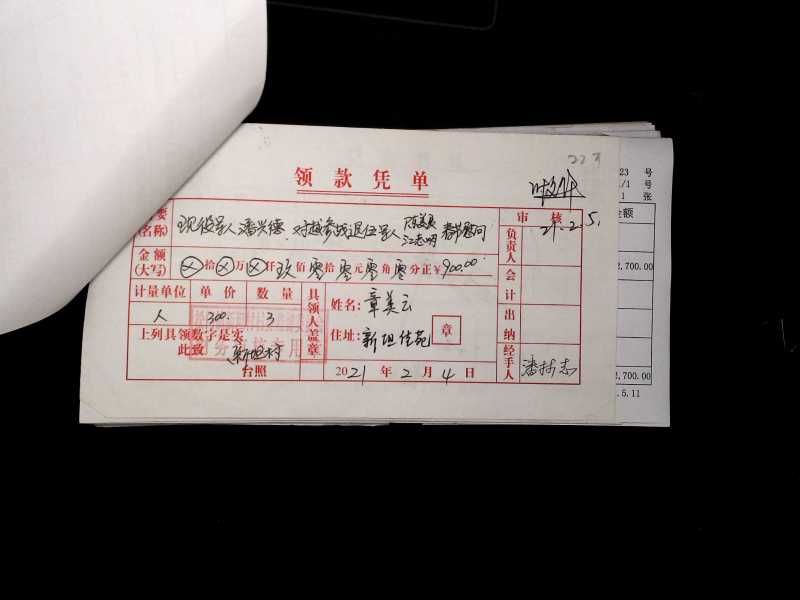 223
领款凭单
摘要(名称) 现役军人潘兴德、对越参战退伍军人 江志明 春节慰问
审核
21.2.5.
金额(大写) ⊗拾⊗万⊗仟玖佰零拾零元零角零分正¥900.00
计量单位 单价 数量
人 300. 3
具领人盖章
姓名:章美云
住址:新坦佳苑 章
上列具领数字是实
此致 新坦村
台照
2021年2月4日
负责人
会计
出纳
经手人
潘村志
23 号
/1 号
1 张
金额
2,700.00
2,700.00
.5.11